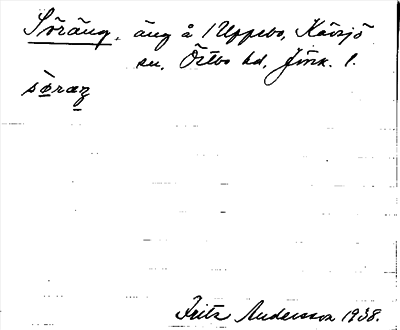 Söräng, äng å 1 Uppebo, Kävsjö
sn, Östbo hd, Jönk. l.
sö̀raŋ
Fritz Andersson 1938.